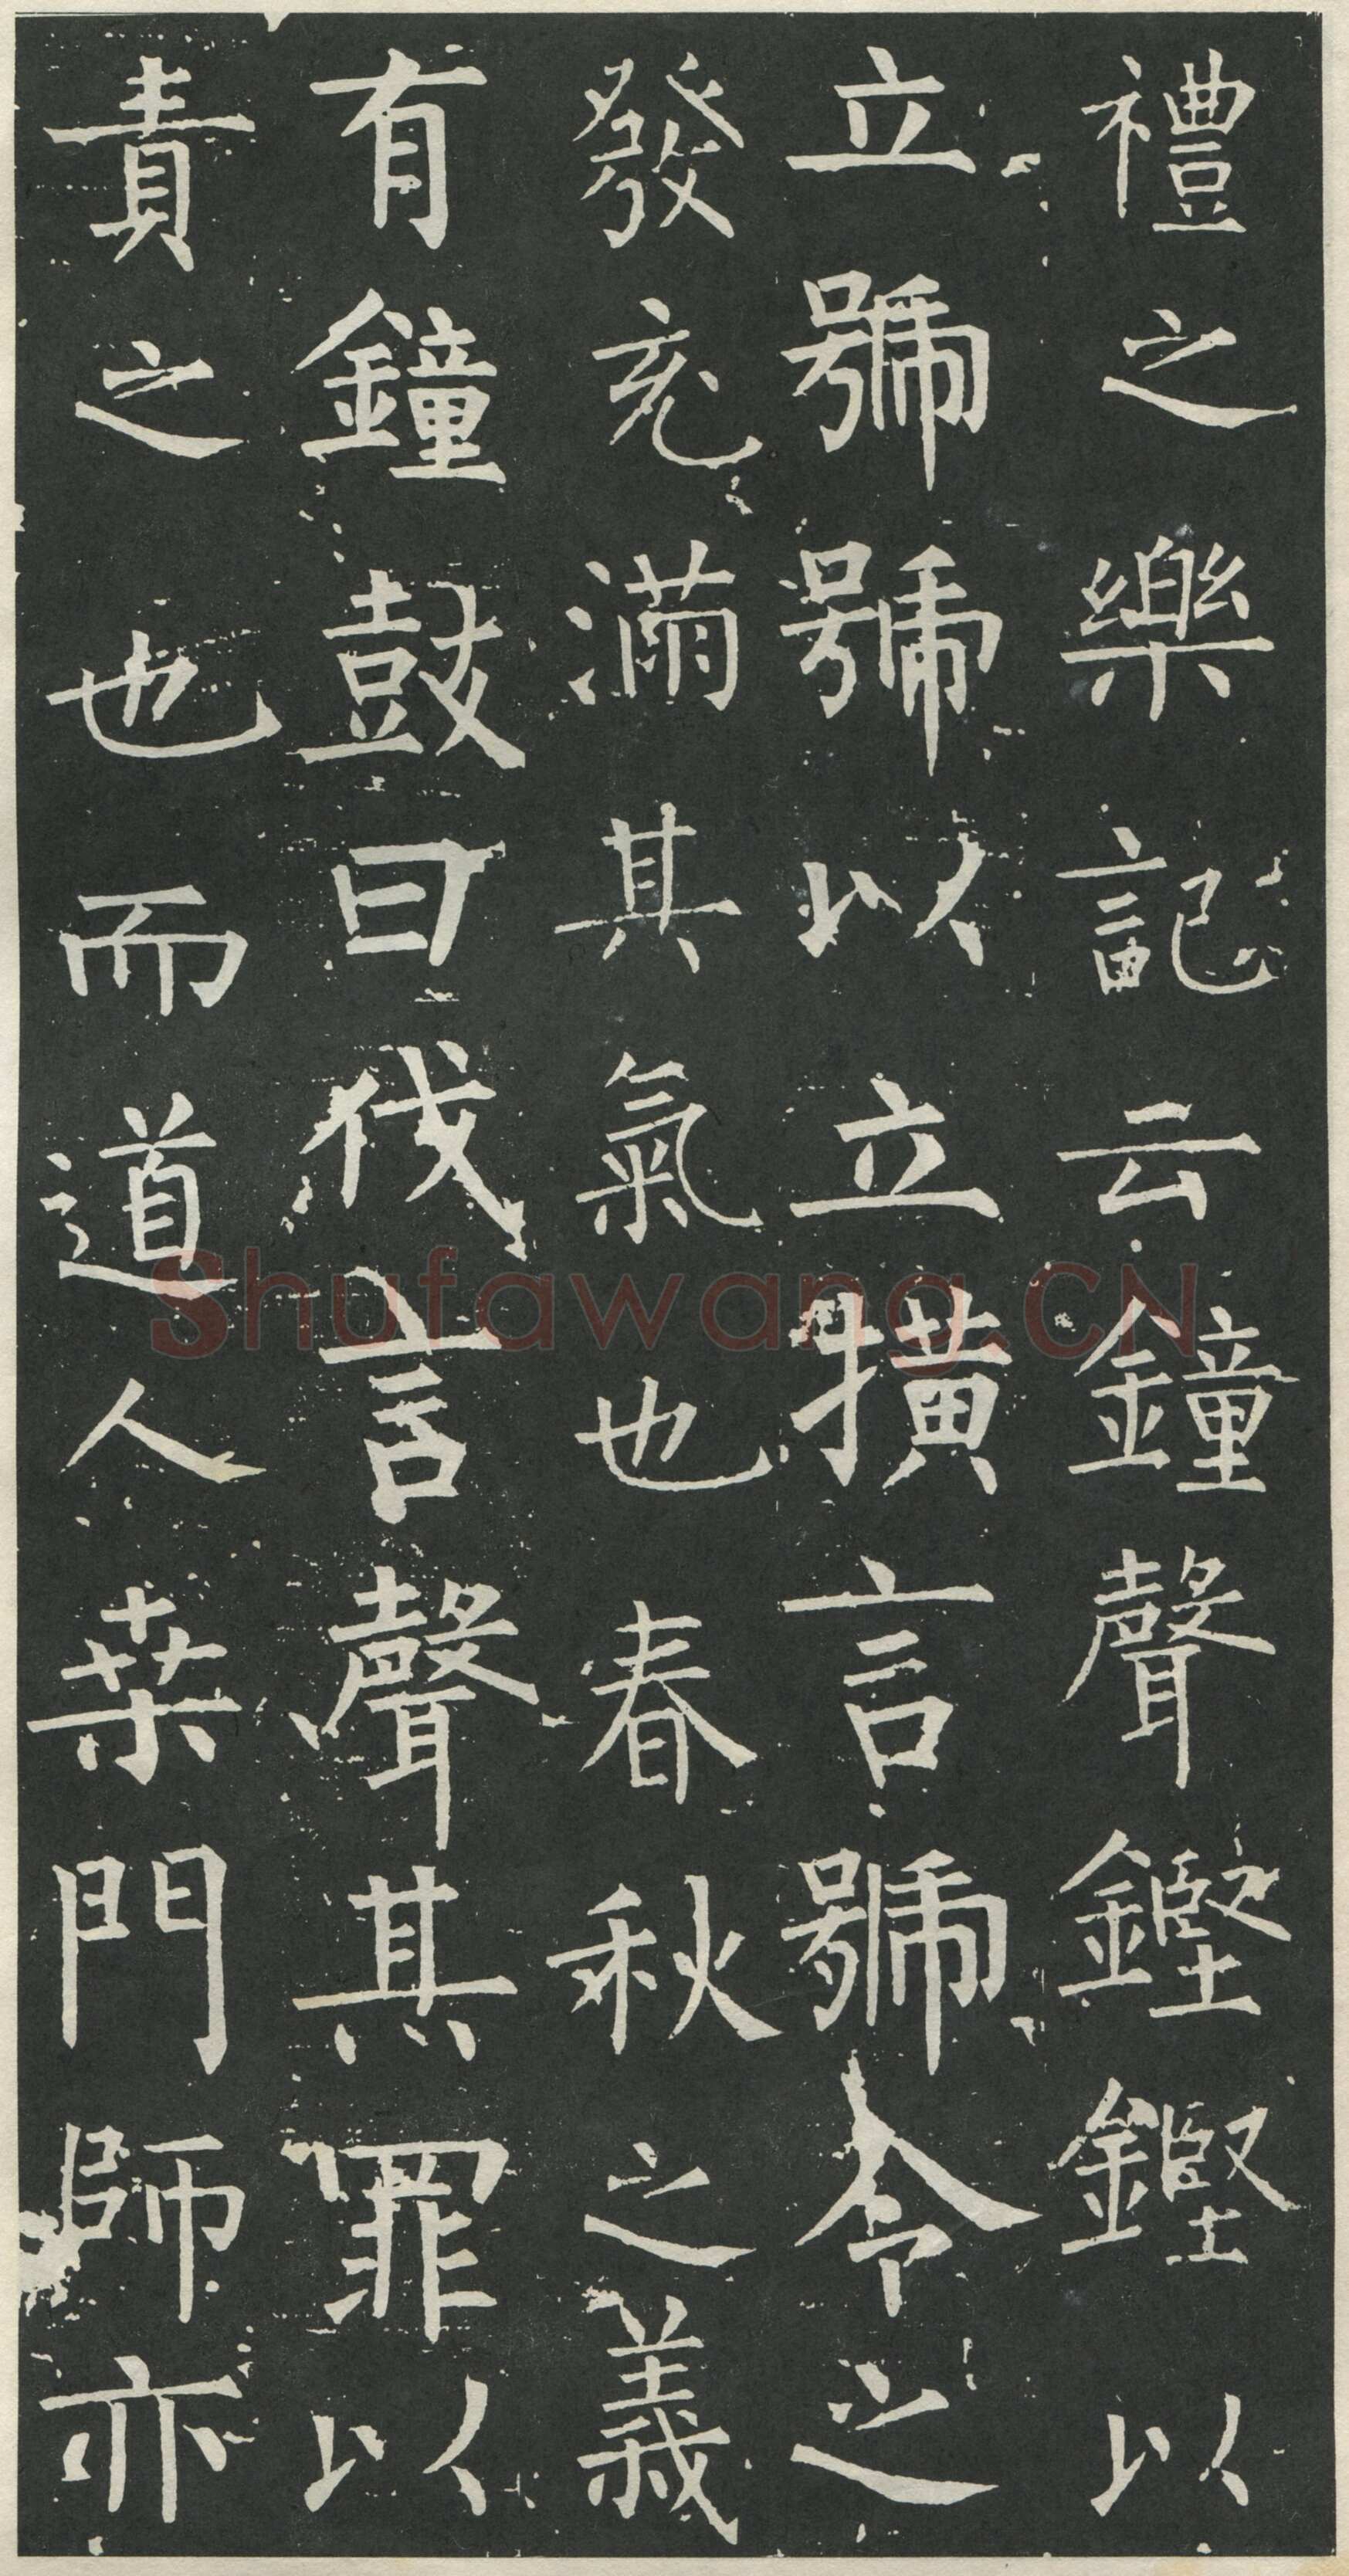 禮之樂記云鐘聲鏗鏗以
立號號以立擴言號令之
發充滿其氣也春秋之義
有鐘鼓曰伐言聲其罪以
責之也而道人桒門師亦
Shufawang.CN